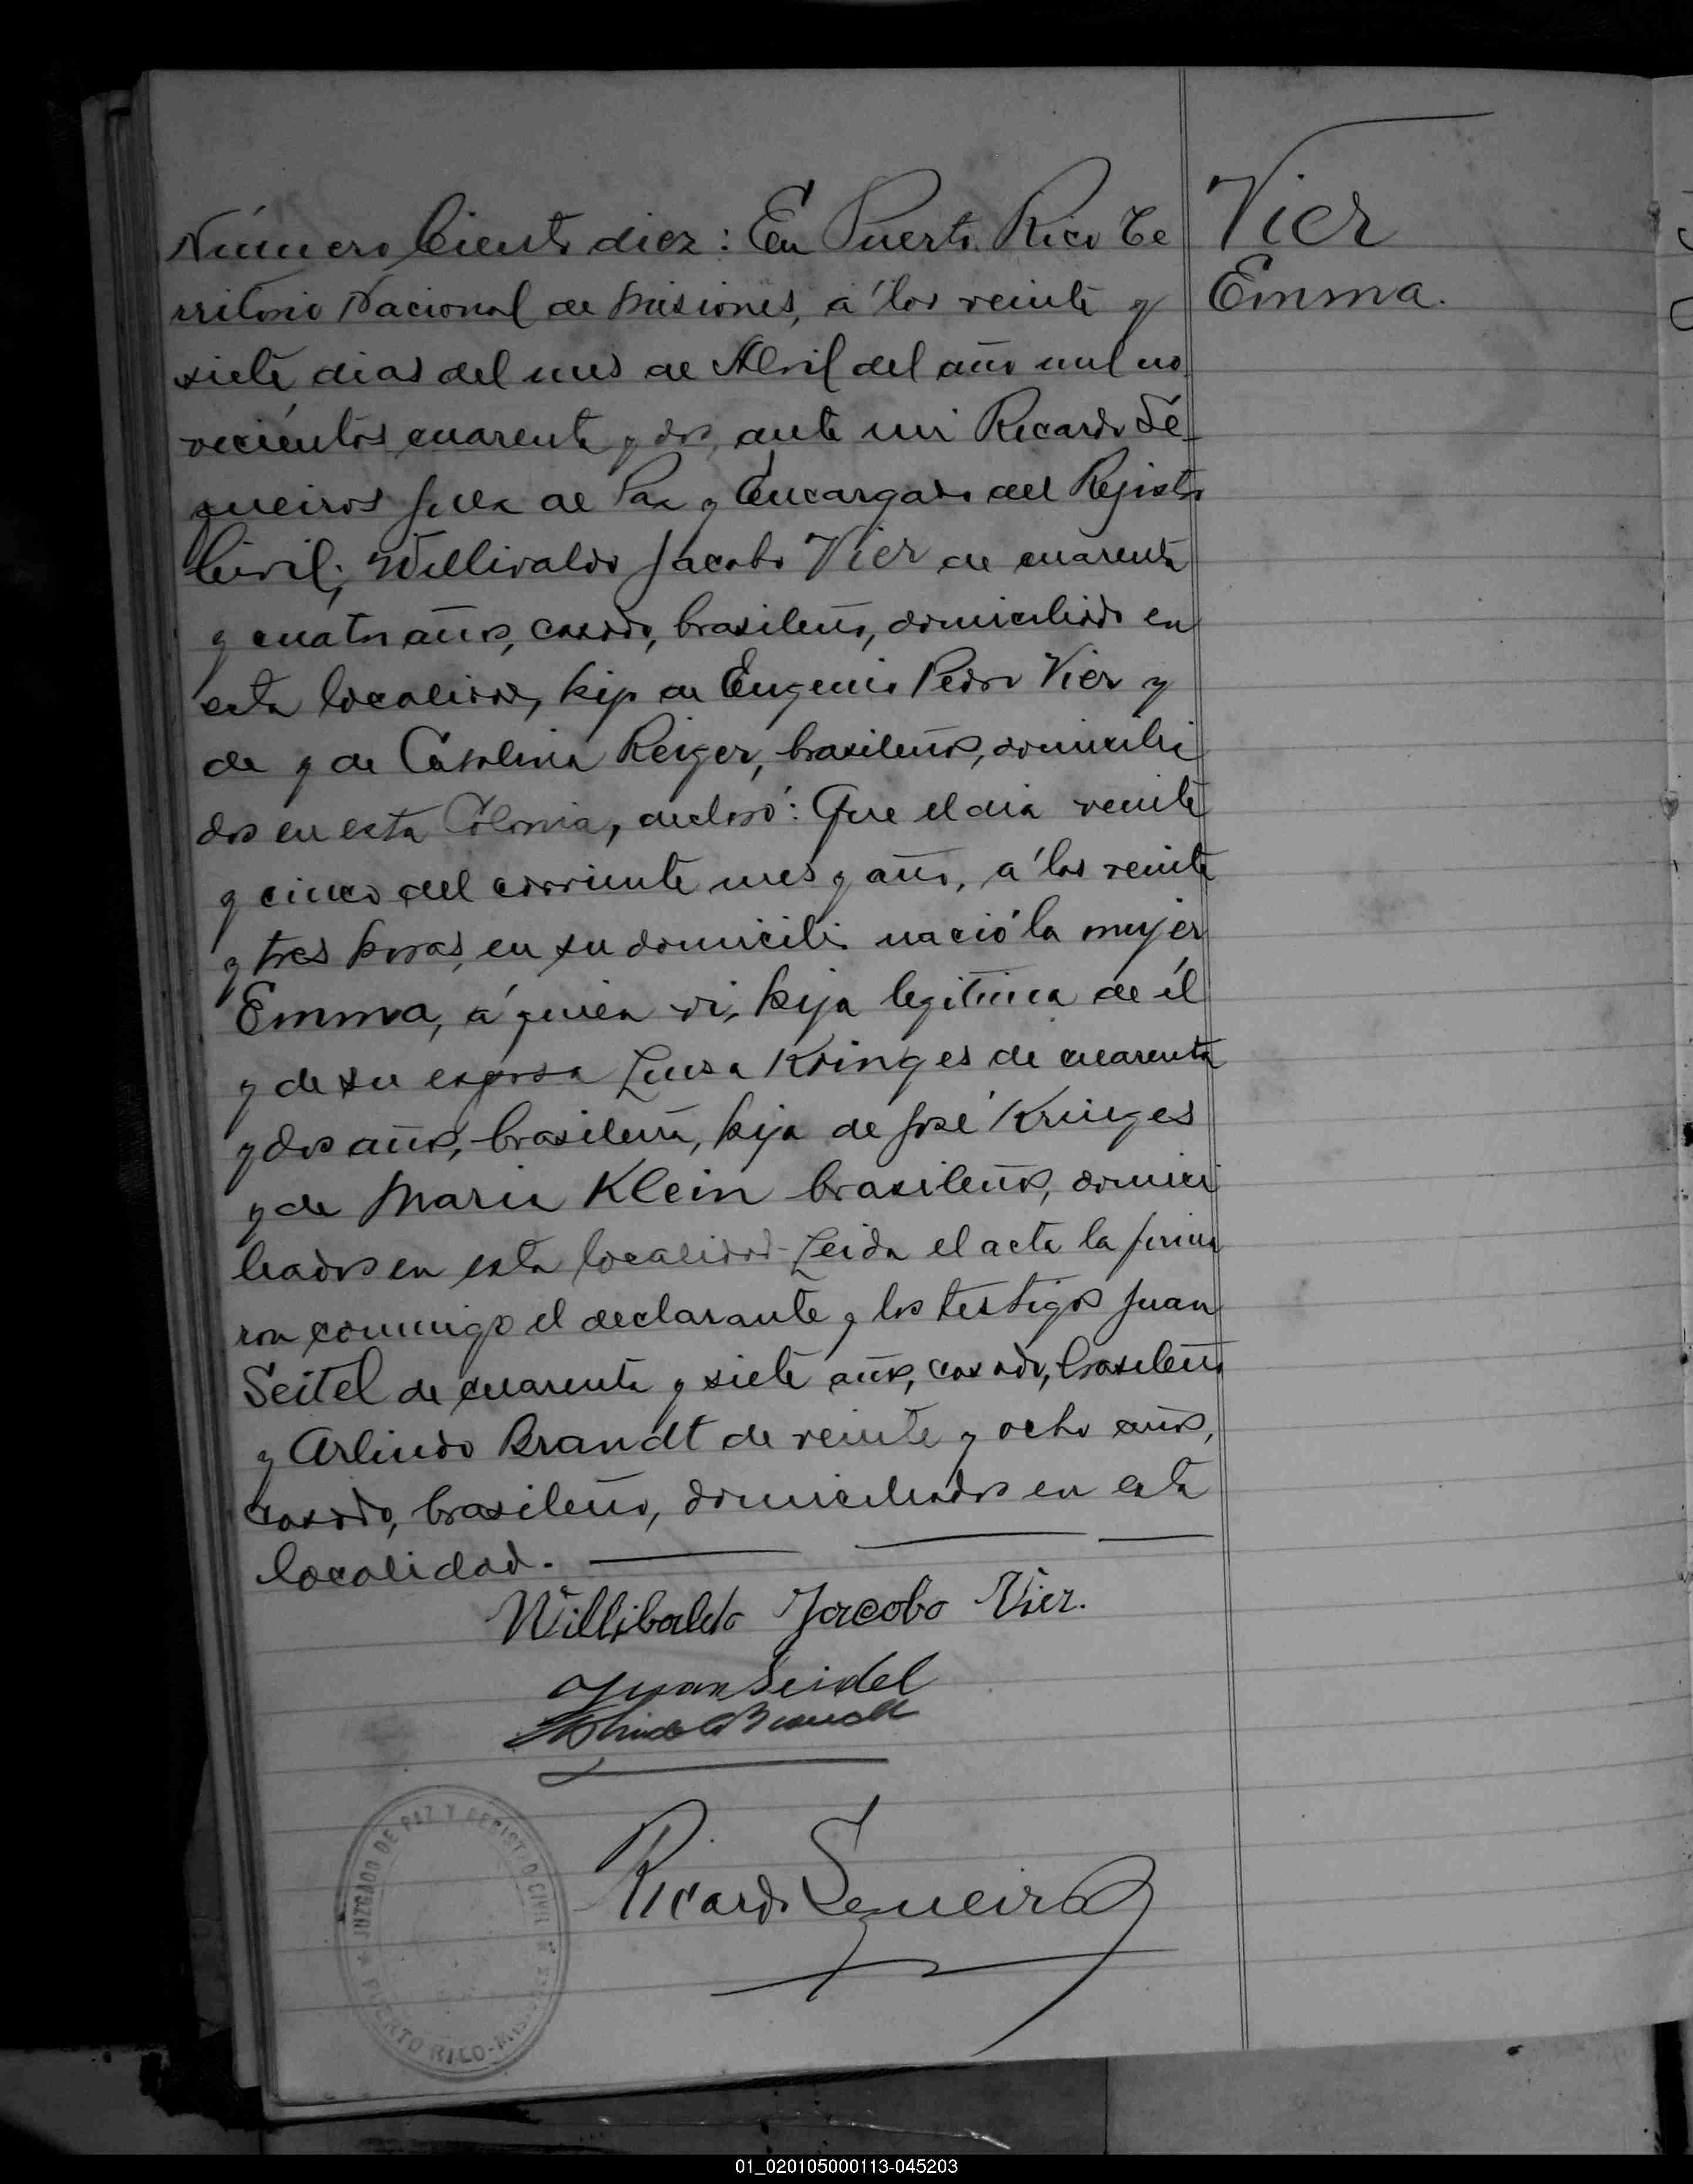 Número Ciento diez: En Puerto Rico Te
rritorio Nacional de Misiones, á los veinte y
siete dias del mes de Abril del año mil no
vecientos cuarenta y dos, ante mi Ricardo Sé-
queiros Juez de Paz y Encargado del Rejistro
Civil; Willivaldo Jacobo Vier de cuarenta
y cuatro años, casado, brasileño, domiciliado en
esta localidad, hijo de Eugenio Pedro Vier y
de y de Carolina Reiger, brasileños, domicilia
dos en esta Colonia, declaró: Que el dia veinte
y cinco del corriente mes y año, á las veinte
y tres horas, en su domicilio nació la mujer
Emma, á quien vi, hija legitima de él
y de su esposa Luisa Kringes de cuarenta
y dos años, brasileña, hija de José Kringes
y de Maria Klein brasileños, domici
liados en esta localidad- Leida el acta la firma
ron conmigo el declarante y los testigos Juan
Seitel de cuarenta y siete años, casado, brasileño
y Arlindo Brandt de veinte y ocho años,
casado, brasileño, domiciliados en esta
localidad.
Willibaldo Jacobo Vier.
Juan Seidel
Arlindo Brandt
Ricardo Sequeiros
JUZGADO DE PAZ Y REGISTRO CIVIL
PUERTO RICO-
Vier
Emma.
01_020105000113-045203